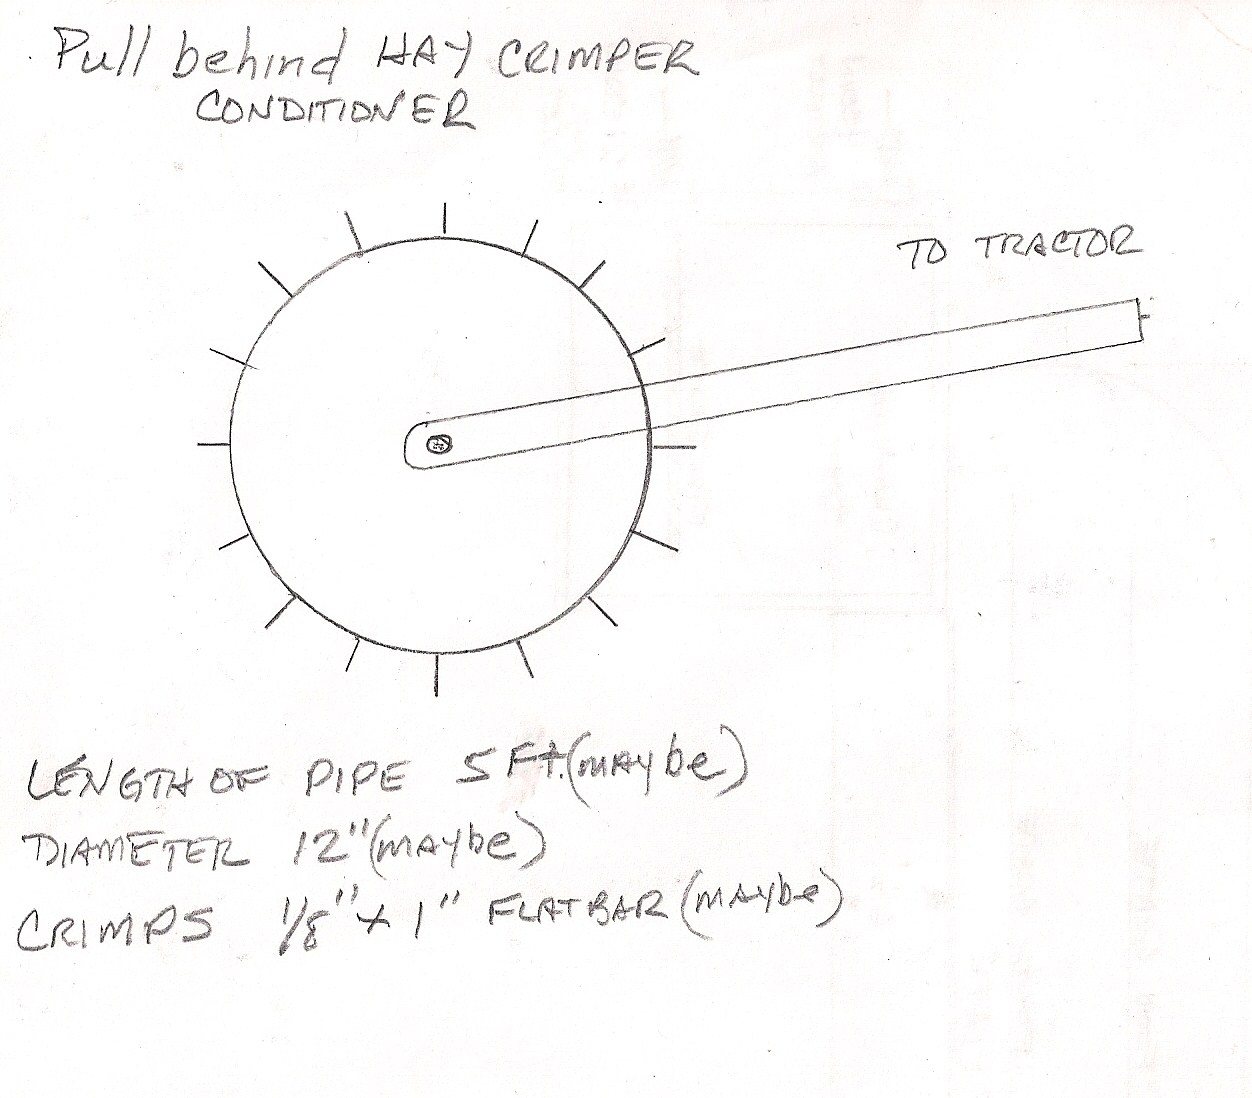 Pull behind HAY CRIMPER
CONDITIONER
TO TRACTOR
LENGTH OF PIPE 5 Ft. (MAYbe)
DIAMETER 12" (MAYbe)
CRIMPS 1/8" x 1" FLATBAR (MAYbe)